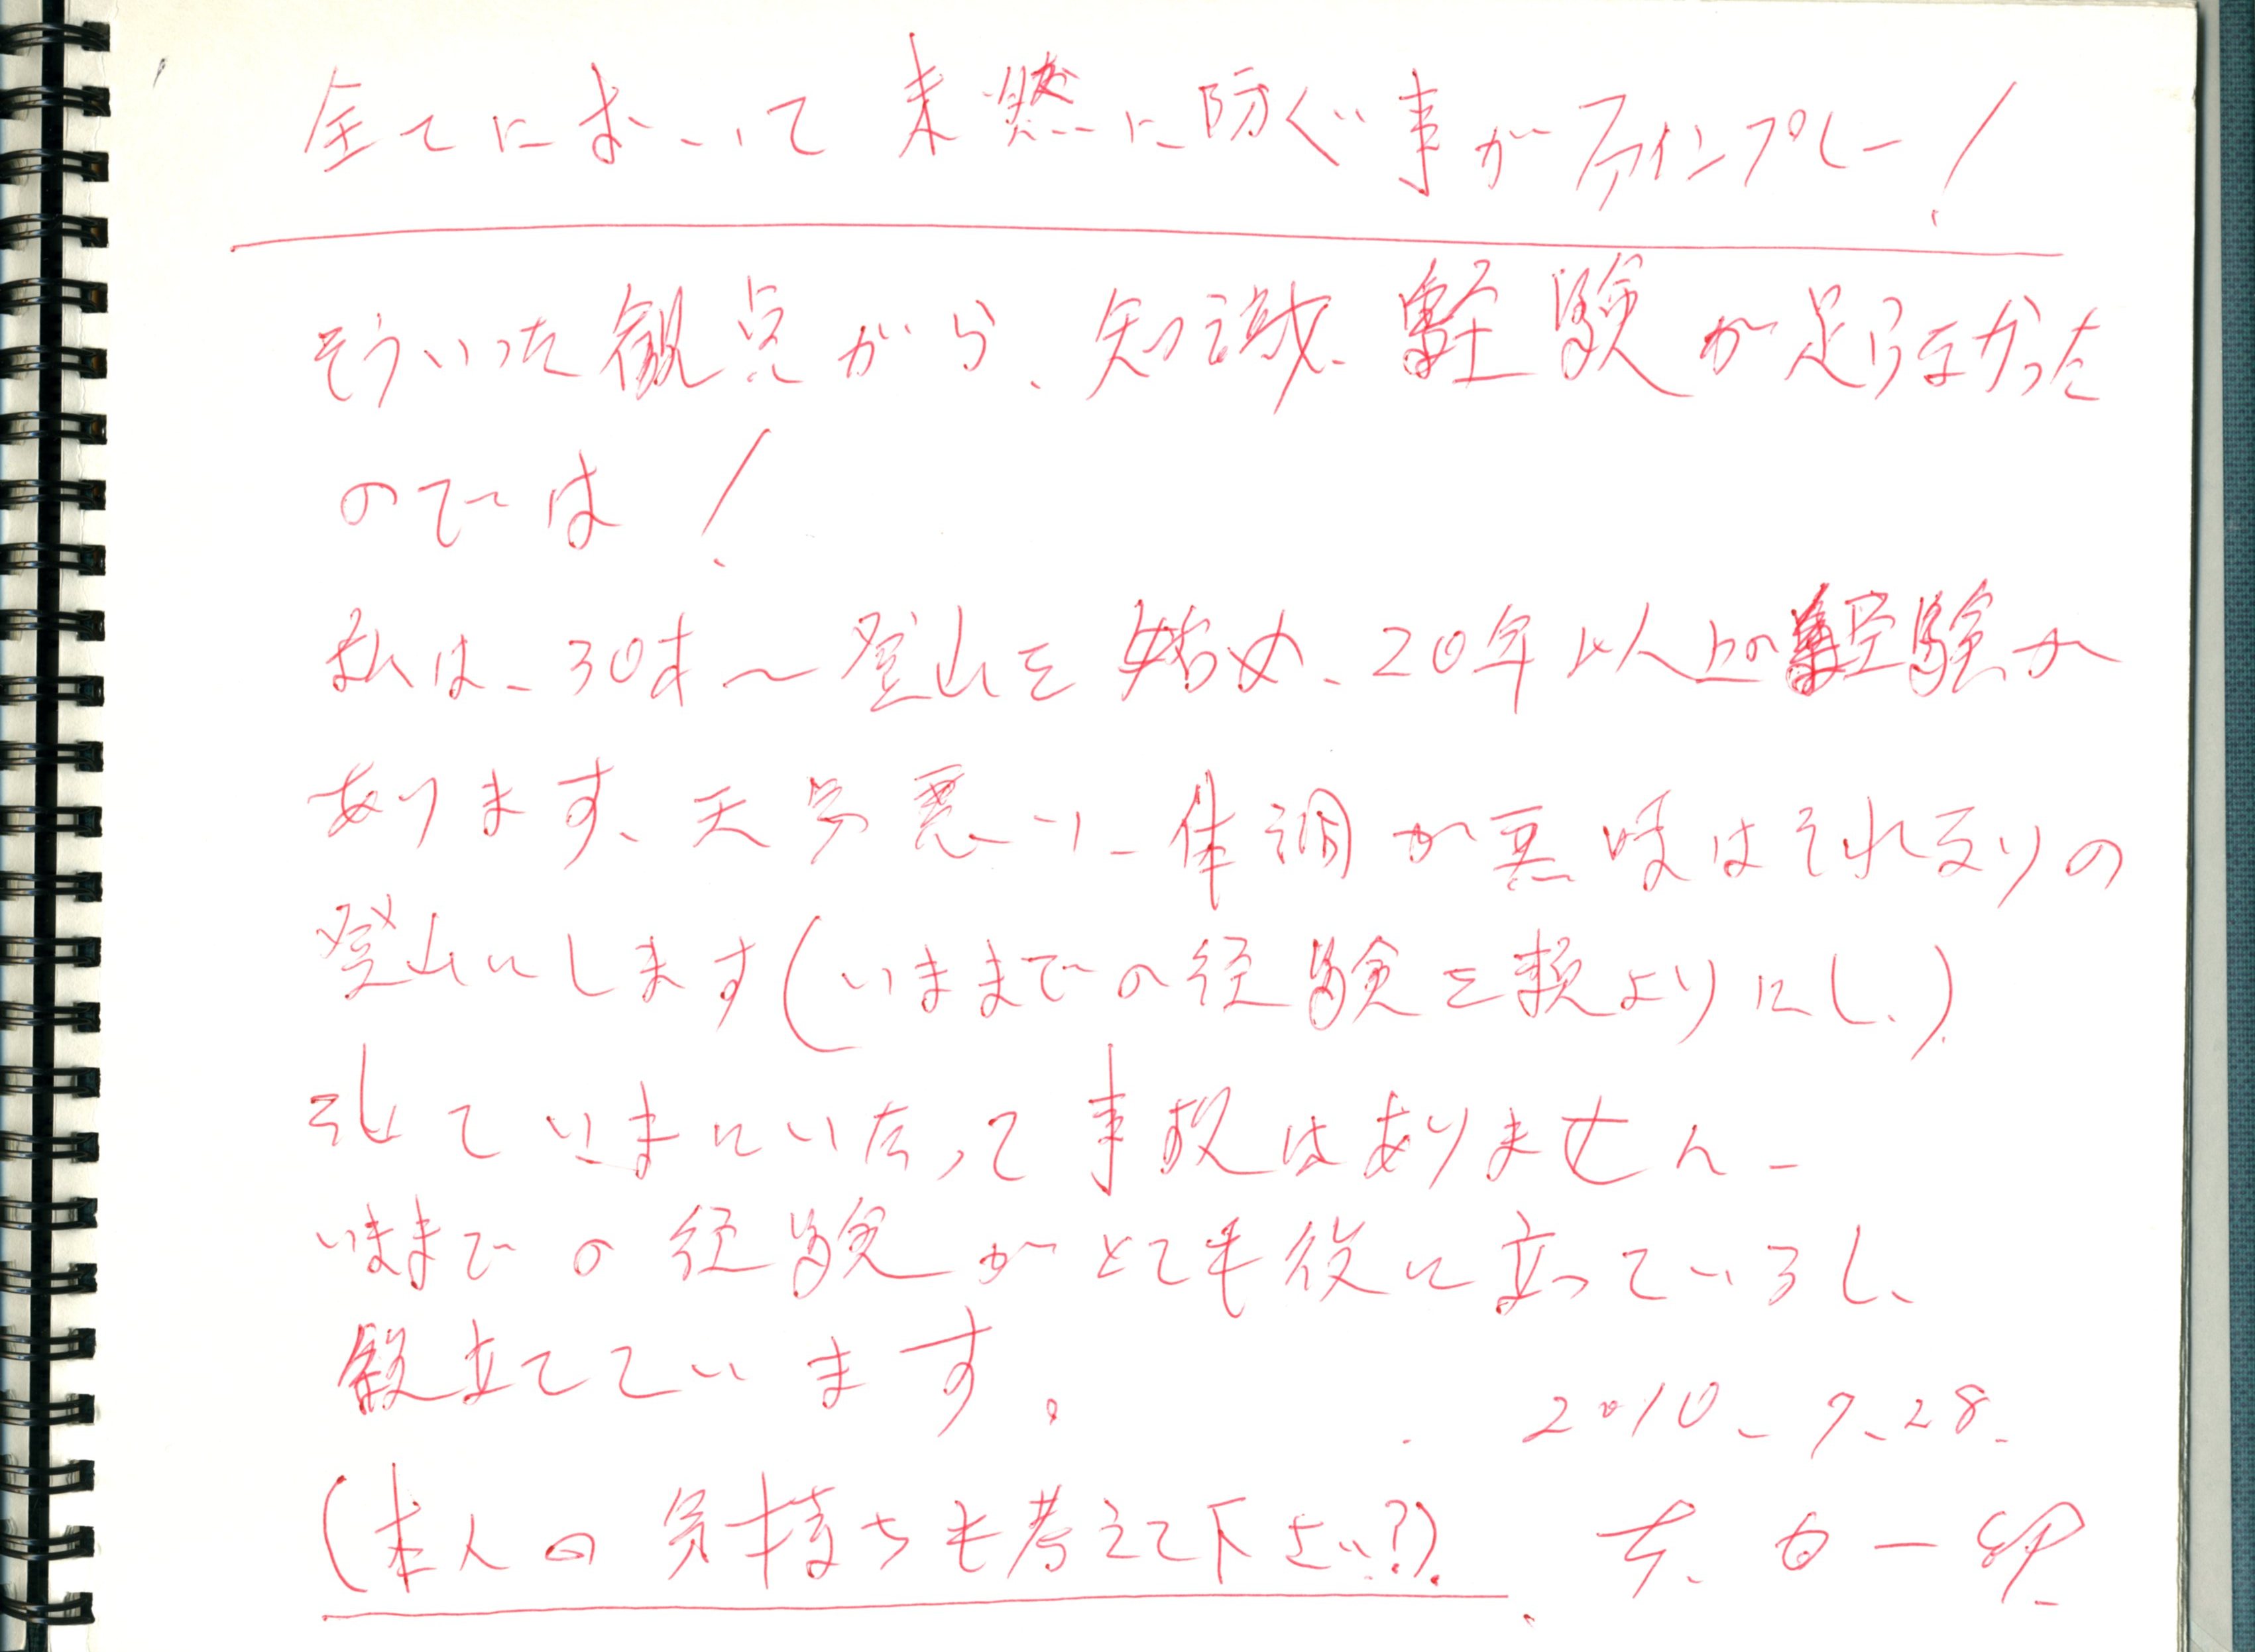 全てにおいて未然に防ぐ事がファインプレー!
そういった観点がら、知識、経験が足らなかった
のでは!
私は、30才〜登山を始め、20年以上の経験が
あります、天気悪い、体調が悪時はそれなりの
登山にします(いままでの経験を頼よりにし、)
そしていまにいたって事故はありません、
いままでの経験がとても役に立っているし、
役立てています。
2010、7、28、
(本人の気持ちも考えて下さい?)、